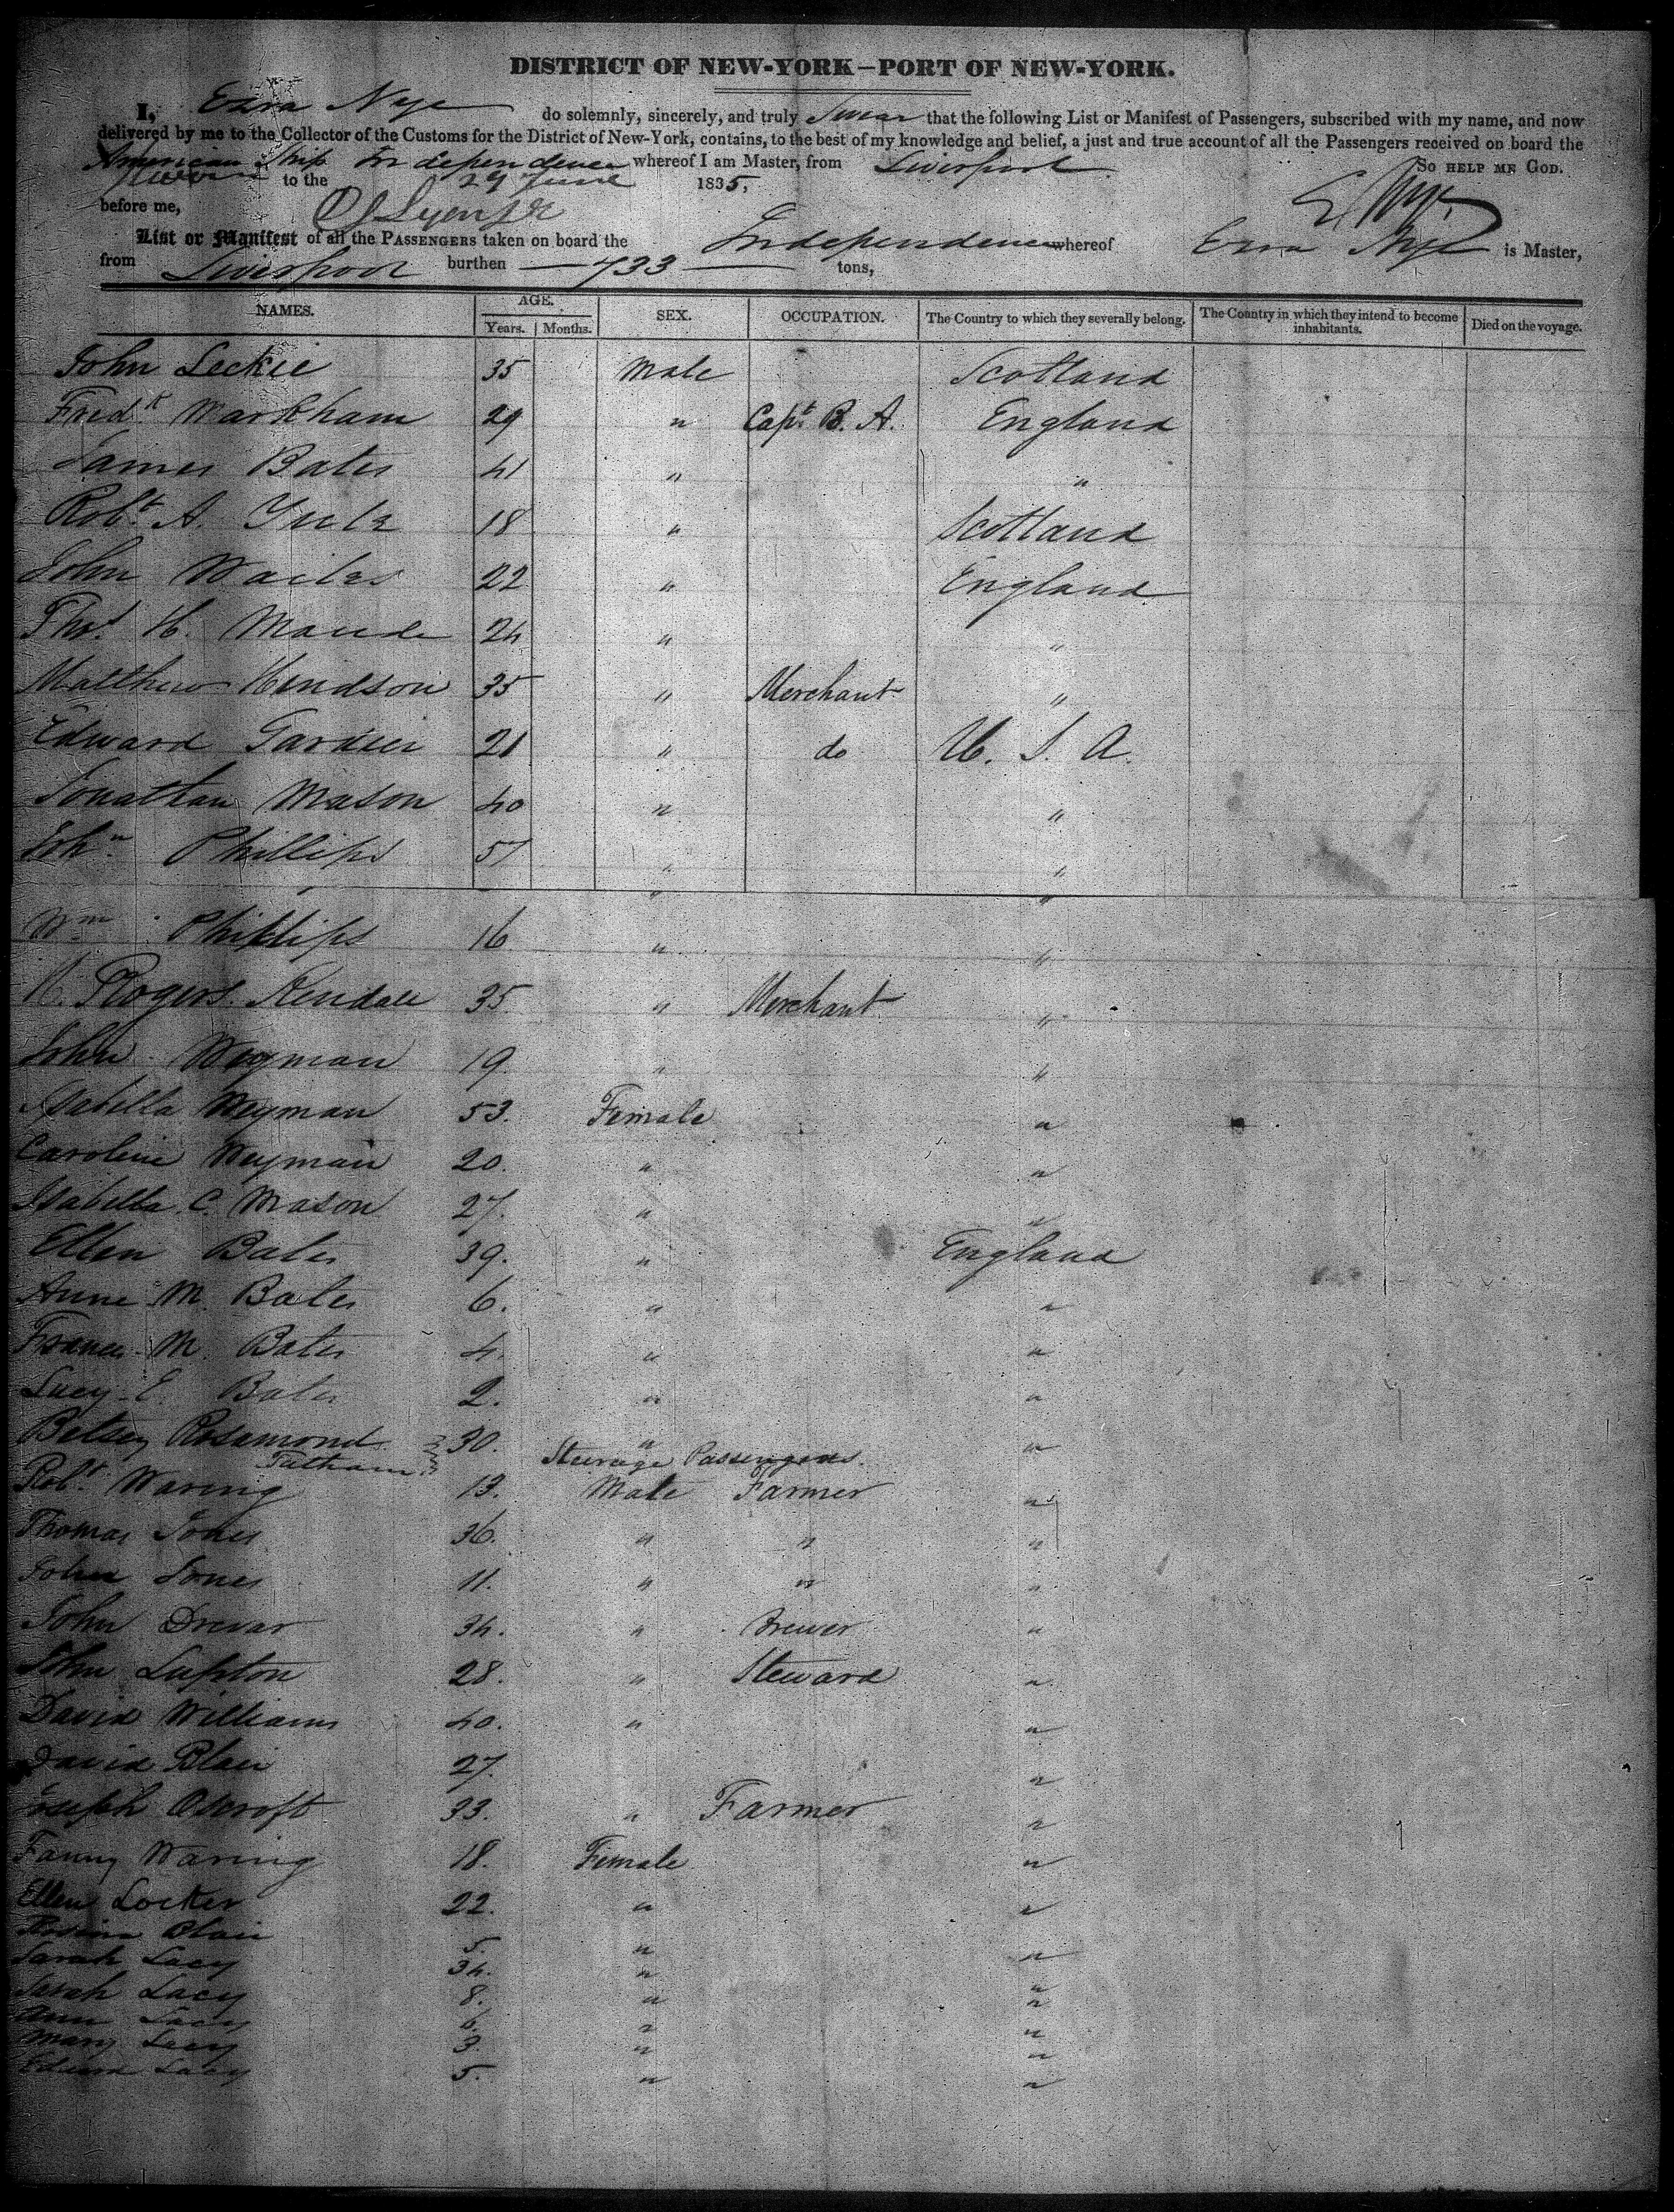 DISTRICT OF NEW-YORK—PORT OF NEW-YORK.
I, Ezra Nye do solemnly, sincerely, and truly Swear that the following List or Manifest of Passengers, subscribed with my name, and now
delivered by me to the Collector of the Customs for the District of New-York, contains, to the best of my knowledge and belief, a just and true account of all the Passengers received on board the
American Ship Independence whereof I am Master, from Liverpool So HELP ME GOD.
Sworn to the 29 June 1835, E Nye
before me,
List or Manifest of all the PASSENGERS taken on board the Independence whereof Ezra Nye is Master,
from Liverpool burthen 733 tons,
NAMES. AGE. Years. Months. SEX. OCCUPATION. The Country to which they severally belong. The Country in which they intend to become inhabitants. Died on the voyage.
John Leckie 35 Male Scotland
Fredk Markham 29 " Capt. B. A. England
James Bates 41 " "
Robt. A. Yule 18 " Scotland
John Wailes 22 " England
Thos. H. Maude 24 " "
Matthew Hindson 35 " Merchant "
Edward Gardier 21 " do U. S. A.
Jonathan Mason 40 " "
John Phillips 57 " "
" "
Wm Phillips 16 " "
Rogers Kendall 35. " Merchant "
John Weyman 19. " "
Isabella Weyman 53. Female "
Caroline Weyman 20. " "
Isabella C Mason 27. " "
Ellen Bates 39. " England
Anne M. Bates 6. " "
Frances M. Bates 4. " "
Lucy E. Bates 2. " "
Betsey Rosamond 30. " "
Tatham Steerage Passengers.
Robt. Waring 13. Male Farmer "
Thomas Jones 36. " " "
John Jones 11. " " "
John Drevar 34. " Brewer "
John Lupton 28. " Steward "
David Williams 40. " "
David Blair 27. "
Joseph Oscroft 33. " Farmer "
Fanny Waring 18. Female "
Ellen Locker 22. " "
Blair 5. " "
Sarah Lacy 34. " "
Sarah Lacy 8. " "
Ann Lacy 6. " "
Mary Lacy 3. " "
Edward Lacy 5. " "